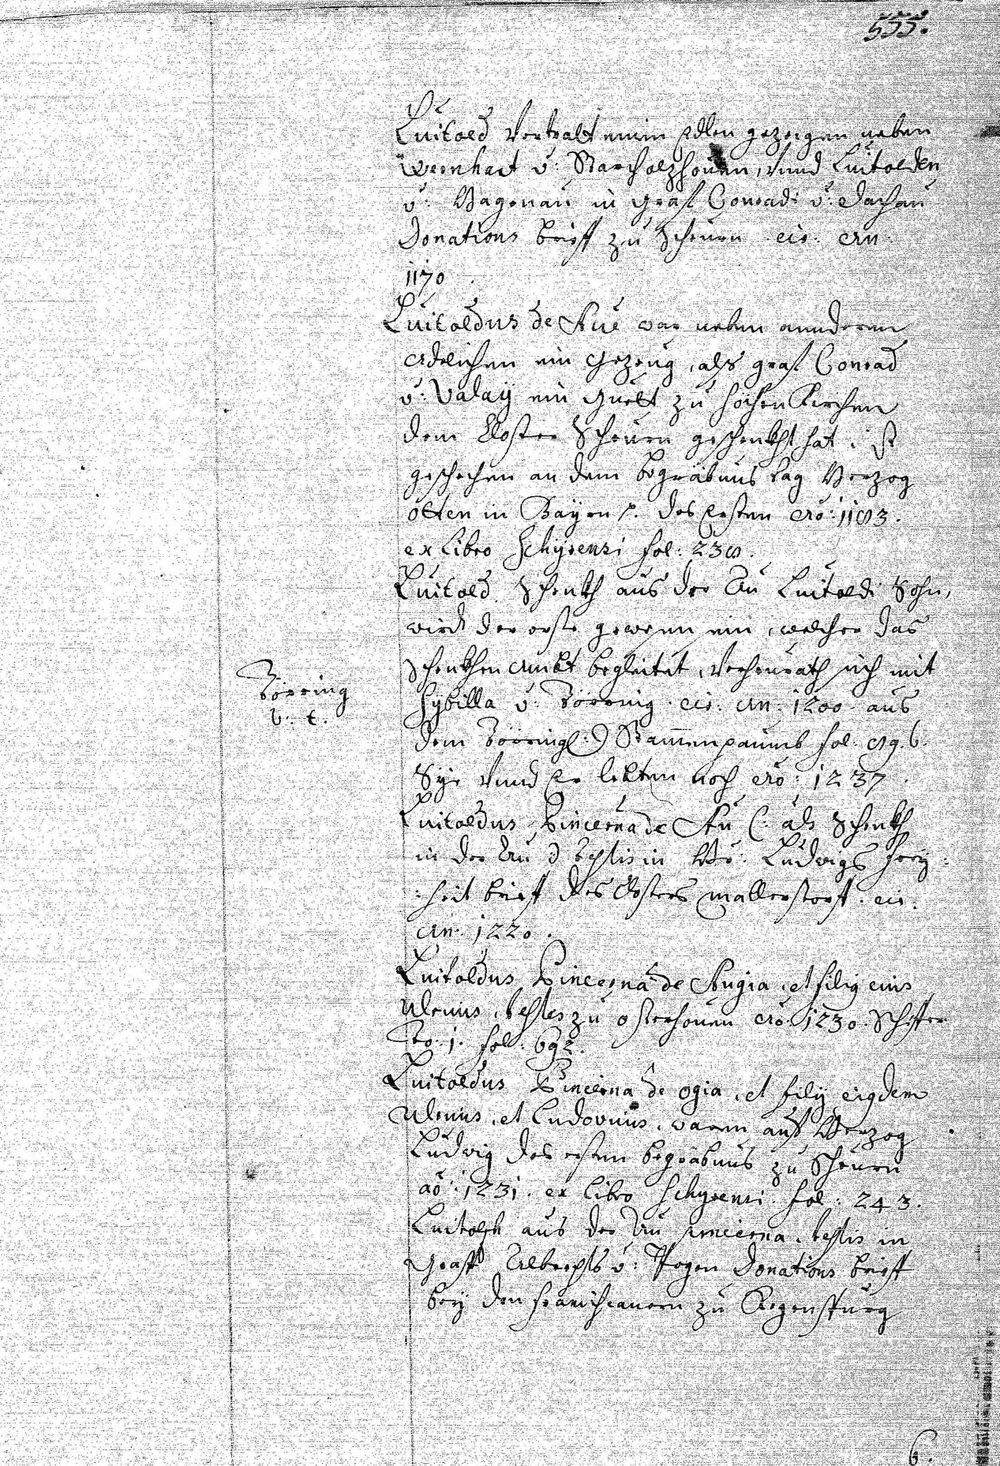 555.
Luitold Vertrabt einen Edlen gezeugen neben
Wernhart v: Starcholzhouen, vnnd Luitolden
v: Wagenau in Graf Conradi v: Dachau
Donations brieff zu Scheurn cir: an:
1170
Luitoldus de Aue war neben annderen
Adelichen ein Gezeug, als graf Conrad
v: Valaÿ ein Guett zu Höchen Kirchen
dem Closter Scheurn geschenkht hat, ist
geschechen an dem begräbnus tag Herzog
Otten in Bayrn p. des Ersten aõ: 1183.
ex Libro Schyrensi fol: 230.
Luitold Schenkh aus der Au Luitoldi Sohn,
wird der erste gewesen sein, welcher das
Schenkhen Ambt begleitet, Verheurath sich mit
Sybilla v: Törring cir: an: 1200 aus
dem Törring(:) Stammenpaumb fol: 
Törring
v: t.
Sye vnnd Er lebten noch aõ: 1237.
Luitoldus Pincerna de Au (: als Schenkh
in der Au :) testis in Ludwigs frey
:heit brieff des Closters Mallerstorff. cir.
an: 1220.
Luitoldus Pincerna de Augia, et filius eius
Ulricus, testes zu Osterhouen aõ 1230.
To: 1. fol: 692.
Luitoldus Pincerna de Ogia, et filij eiusdem
Ulricus, et Ludovicus, waren auf Herzog
Ludwig des ersten begräbnus zu Scheurn
aõ: 1231. ex libro Schyrensi. fol: 243.
Luitolf aus der Au Pincerna, testis in
Graff Albrechts v: Pogen Donations brieff
bey den Franciscanern zu Regenspurg
6.